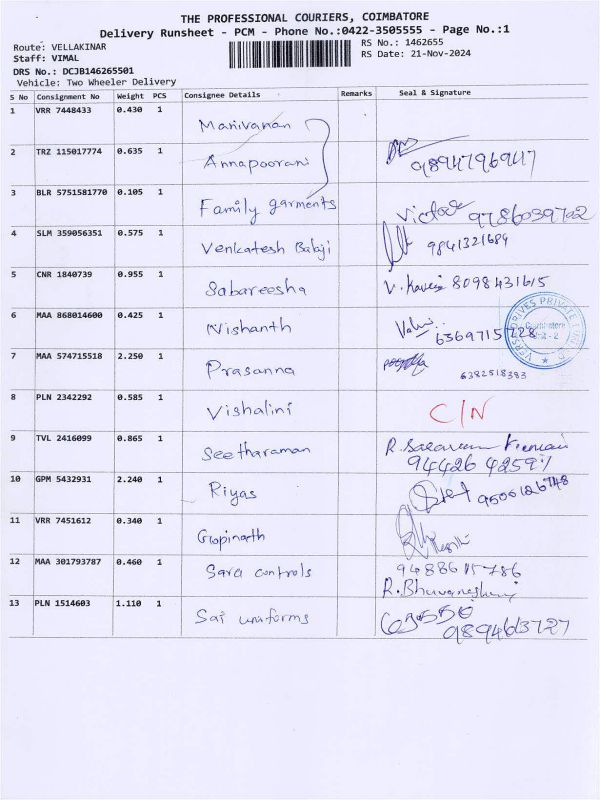 THE PROFESSIONAL COURIERS, COIMBATORE
Delivery Runsheet - PCM - Phone No.:0422-3505555 - Page No.:1
Route: VELLAKINAR RS No.: 1462655
Staff: VIMAL RS Date: 21-Nov-2024
DRS No.: DCJB146265501
Vehicle: Two Wheeler Delivery
S No Consignment No Weight PCS Consignee Details Remarks Seal & Signature
1 VRR 7448433 0.430 1 Manivanan
2 TRZ 115017774 0.635 1 Annapoorani 9894796947
3 BLR 5751581770 0.105 1 Family garments Victor 9786039702
4 SLM 359056351 0.575 1 Venkatesh Babji 9841321684
5 CNR 1840739 0.955 1 Sabareesha 8098431615
6 MAA 868014600 0.425 1 Nishanth 6369715728
7 MAA 574715518 2.250 1 Prasanna 6382518383
8 PLN 2342292 0.585 1 Vishalini C/N
9 TVL 2416099 0.865 1 Seetharaman
94426 42591
10 GPM 5432931 2.240 1 Riyas 9500126748
11 VRR 7451612 0.340 1 Gopinath
12 MAA 301793787 0.460 1 Sara controls 9488615786
R. Bhuvaneshwari
13 PLN 1514603 1.110 1 Sai uniforms 63550
9894613727